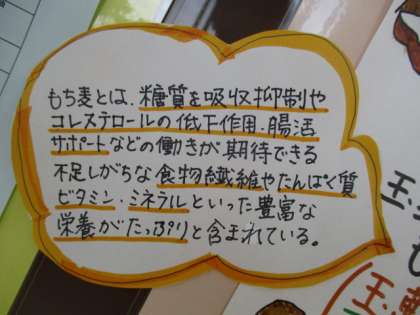 もち麦とは、糖質を吸収抑制や
コレステロールの低下作用・腸活
サポートなどの働きが期待できる
不足しがちな食物繊維やたんぱく質
ビタミン・ミネラルといった豊富な
栄養がたっぷりと含まれている。
玉
玉